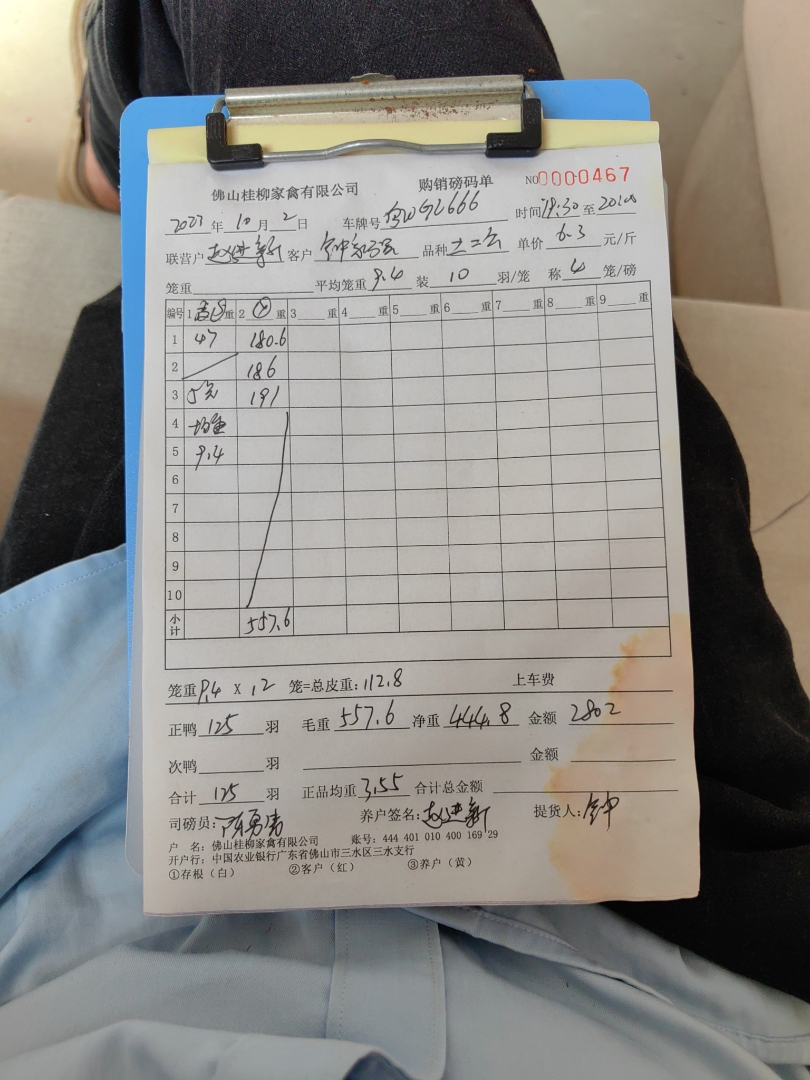 佛山桂柳家禽有限公司 购销磅码单 NO0000467
2023年10月2日 车牌号 时间19:30至20:00
联营户 赵进新 客户 品种 单价 6.3 元/斤
笼重 平均笼重 9.4 装 10 羽/笼 称 4 笼/磅
编号 1 重 2 重 3 重 4 重 5 重 6 重 7 重 8 重 9 重
1 47 180.6
2 186
3 191
4 均重
5 9.4
6
7
8
9
10
小计 557.6
笼重 9.4 X 12 笼=总皮重:112.8 上车费
正鸭 125 羽 毛重 557.6 净重 444.8 金额 2802
次鸭 羽 金额
合计 125 羽 正品均重 3.55 合计总金额
司磅员: 养户签名:赵进新 提货人:钟
户 名:佛山桂柳家禽有限公司 账号:444 401 010 400 169 29
开户行:中国农业银行广东省佛山市三水区三水支行
①存根(白) ②客户(红) ③养户(黄)